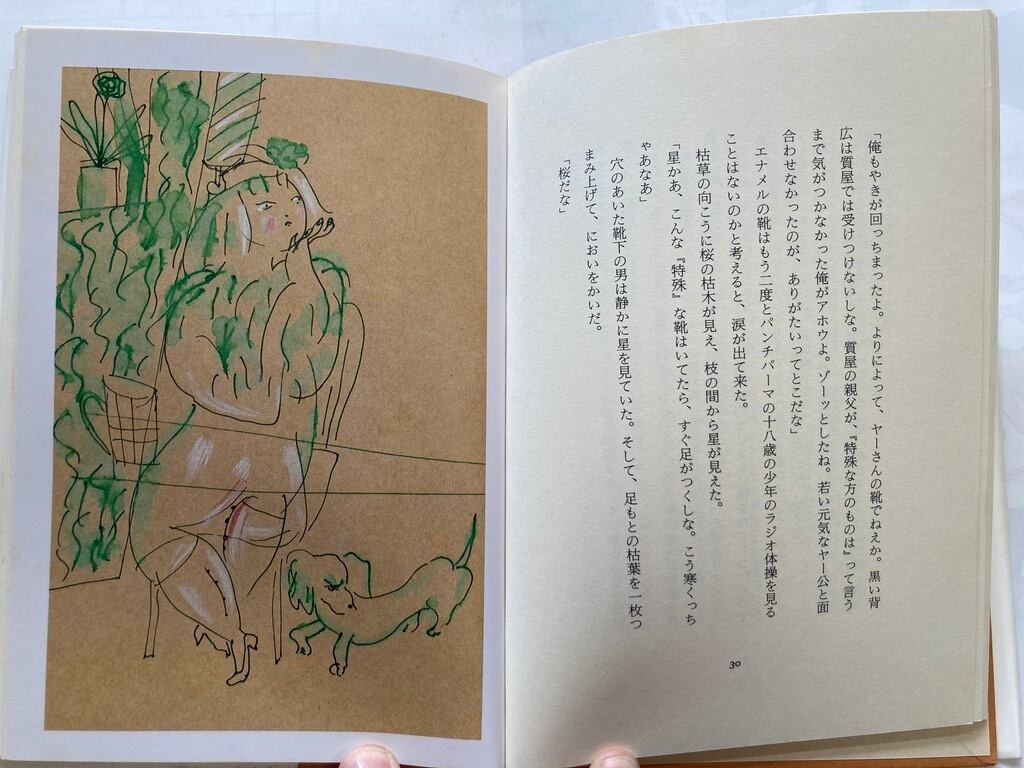 「俺もやきが回っちまったよ。よりによって、ヤーさんの靴でねえか。黒い背
広は質屋では受けつけないしな。質屋の親父が、『特殊な方のものは』って言う
まで気がつかなかった俺がアホウよ。ゾーッとしたね。若い元気なヤー公と面
合わせなかったのが、ありがたいってとこだな」
エナメルの靴はもう二度とパンチパーマの十八歳の少年のラジオ体操を見る
ことはないのかと考えると、涙が出て来た。
枯草の向こうに桜の枯木が見え、枝の間から星が見えた。
「星かあ、こんな『特殊』な靴はいてたら、すぐ足がつくしな。こう寒くっち
ゃあなあ」
穴のあいた靴下の男は静かに星を見ていた。そして、足もとの枯葉を一枚つ
まみ上げて、においをかいだ。
「桜だな」
30